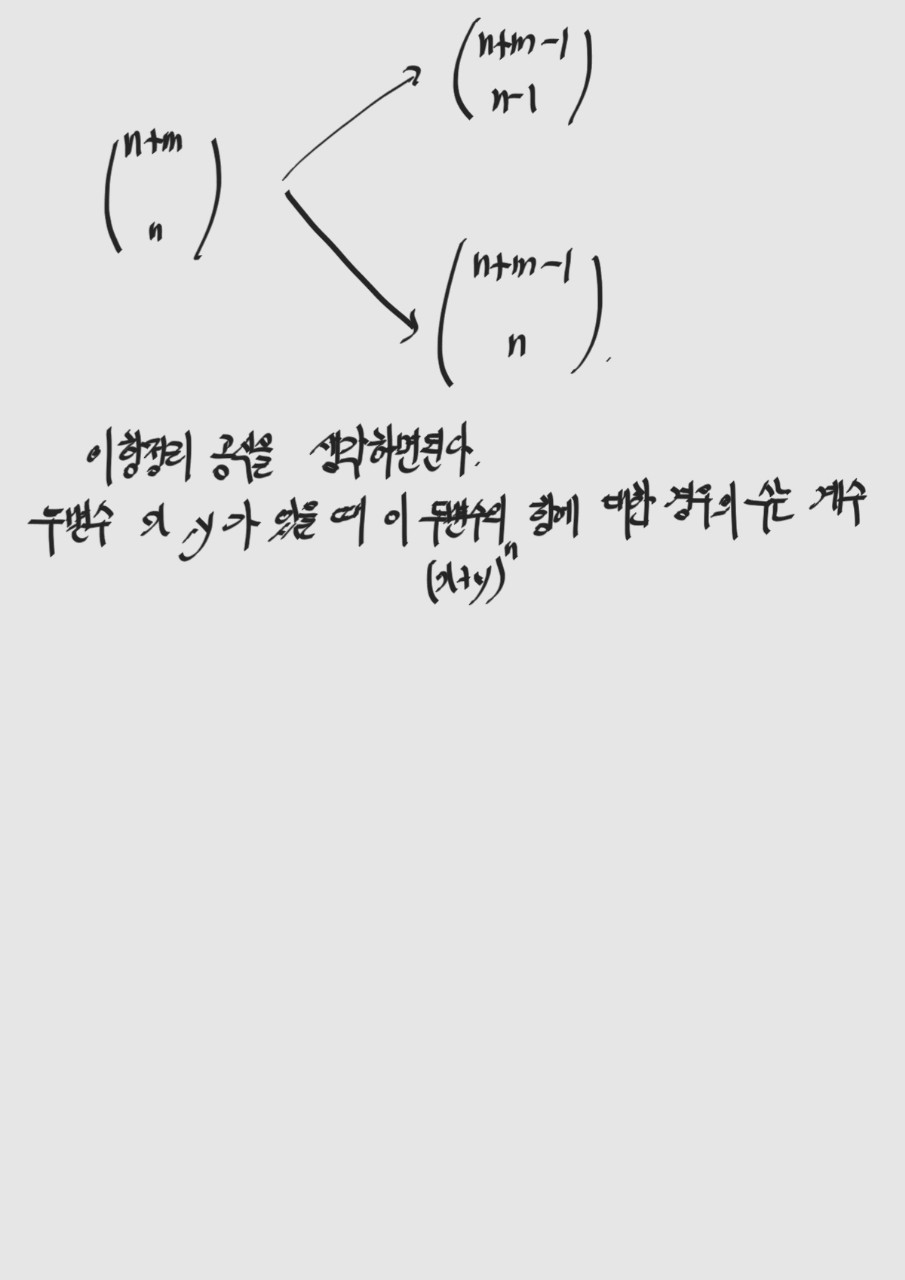 (n+m-1
n-1)
(n+m
n)
(n+m-1
n).
이항정리 공식을 생각하면된다.
두변수 x y가 있을 때 이 두변수의 항에 대한 경우의 수는 계수
(x+y)^n